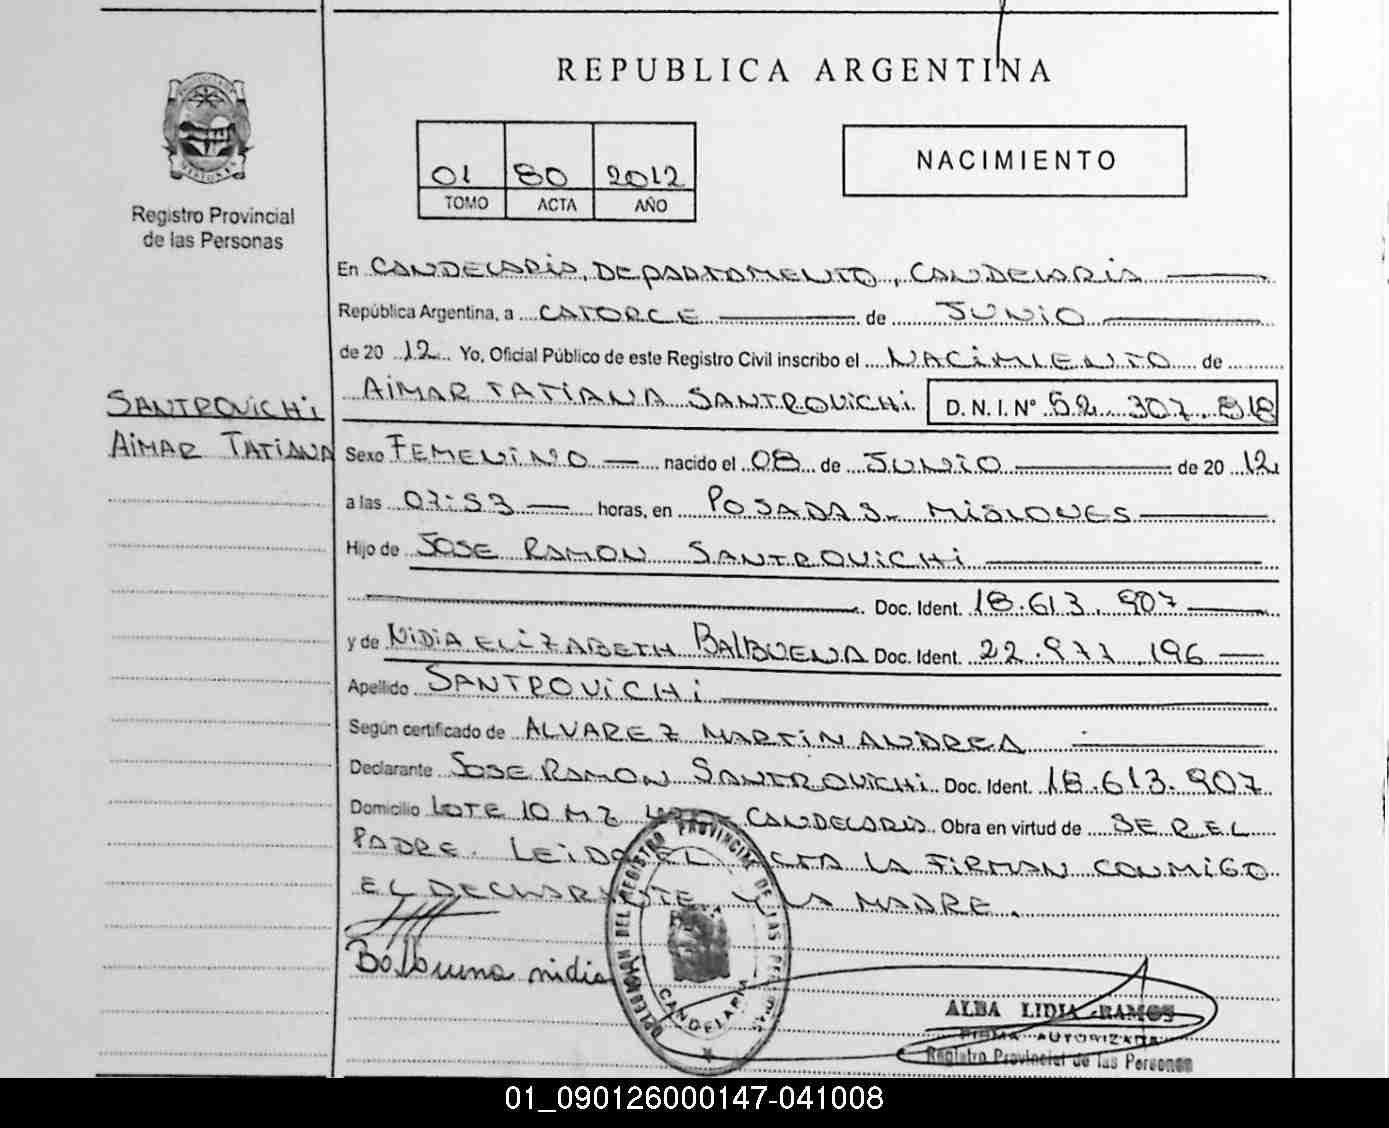 REPUBLICA ARGENTINA
Registro Provincial
de las Personas
01 80 2012
TOMO ACTA AÑO
NACIMIENTO
En CANDELARIA, DEPARTAMENTO, CANDELARIA
República Argentina, a CATORCE de JUNIO
de 20 12 Yo, Oficial Público de este Registro Civil inscribo el NACIMIENTO de
AIMAR TATIANA SANTROVICHI D. N. I. Nº 52. 307. 818
SANTROVICHI
AIMAR TATIANA
Sexo FEMENINO nacido el 08 de JUNIO de 20 12
a las 07:53 horas, en POSADAS- MISIONES
Hijo de JOSE RAMON SANTROVICHI
Doc. Ident. 18.613.907
y de NIDIA ELIZABETH BALBUENA Doc. Ident. 22.977.196
Apellido SANTROVICHI
Según certificado de ALVAREZ MARTIN ANDREA
Declarante JOSE RAMON SANTROVICHI Doc. Ident. 18.613.907
Domicilio LOTE 10 MZ CANDELARIA Obra en virtud de SER EL
PADRE. LEIDA EL ACTA LA FIRMAN CONMIGO
EL DECLARANTE Y LA MADRE.
Balbuena nidia
DEL REGISTRO PROVINCIAL DE LAS
CANDELARIA
ALBA LIDIA RAMOS
FIRMA AUTORIZADA
Registro Provincial de las Personas
01_090126000147-041008